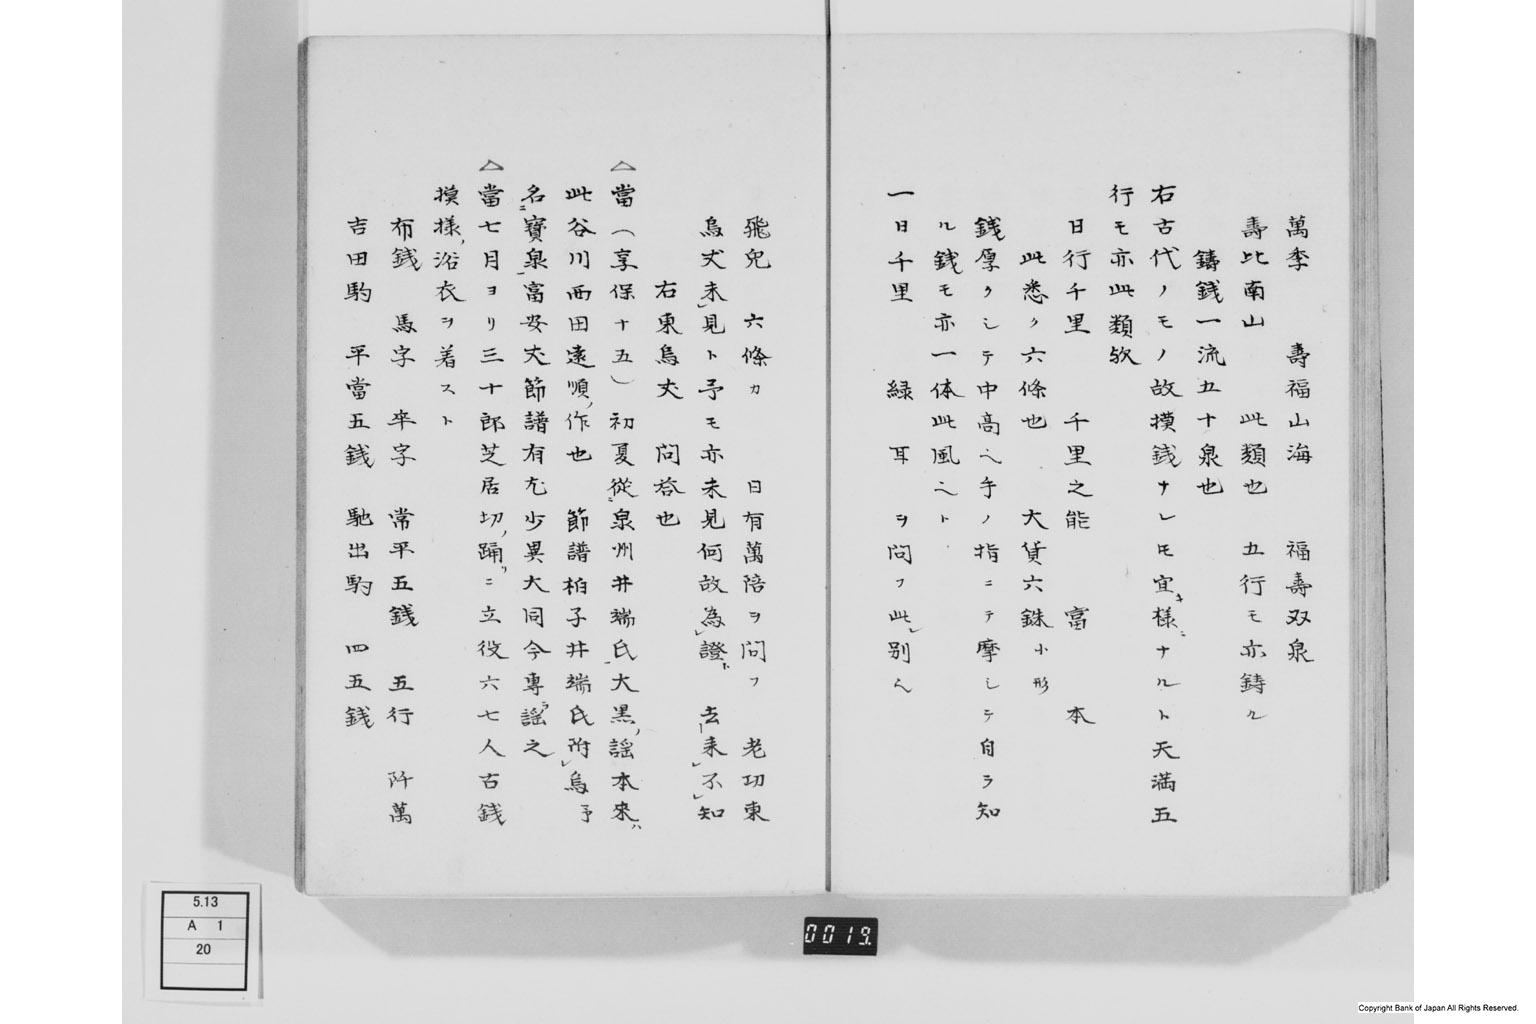 萬季　壽福山海　福壽双泉
壽比南山　此類也　五行モ亦鋳ル
鑄銭一流五十泉也
右古代ノモノ故摸銭ナレ𪜈宜キ様ニナルト天満五
行モ亦此類欤
日行千里　千里之能　富　本
此悉ク六條也　大貨六銖小形
銭厚クシテ中高ヘ手ノ指ニテ摩シテ自ラ知
ル銭モ亦一体此風ヘト
一日千里　緑耳ヲ問フ此別ん
飛兒　六條カ　日有萬陪ヲ問フ　老功東
烏丈未見ト予モ亦未見何故為證ト　去来不知
右東烏丈　問答也
△當（享保十五）初夏従泉州井端氏大黒謡本来ハ
此谷川西田遠順作也　節譜柏子井端氏附烏予
名寶泉富安丈節譜有尤少異大同今專謡之
△當七月ヨリ三十郎芝居切踊リニ立役六七人古銭
摸様浴衣ヲ着スト
布銭　馬字　半字　常平五銭　五行　阡萬
吉田駒　平當五銭　馳出駒　四五銭
5.13
A 1
20
0019
Copyright Bank of Japan All Rights Reserved.